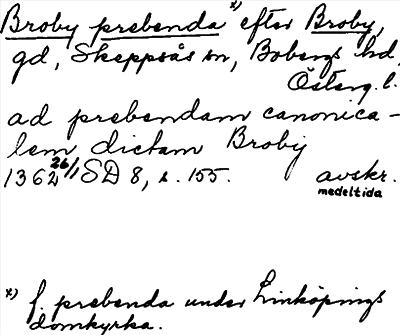 Broby prebenda x) efter Broby,
gd, Skeppsås sn, Bobergs hd,
Österg. l.
ad prebendam canonica-
lem dictam Broby
1362 26/1 SD 8, s. 155. avskr.
medeltida
x) f. prebenda under Linköpings
domkyrka.